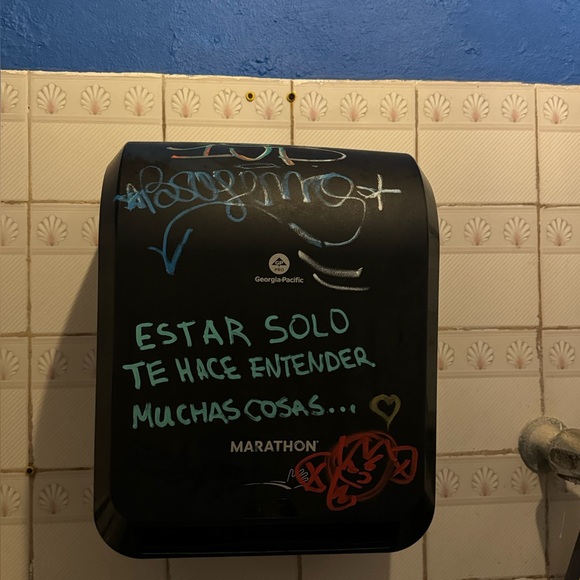 PRO
Georgia-Pacific
ESTAR SOLO
TE HACE ENTENDER
MUCHAS COSAS...
MARATHON